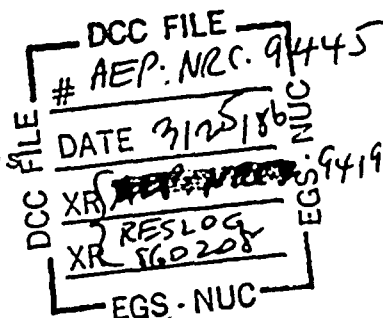 DCC FILE
# AEP:NRC. 9445
DATE 3/25/86
XR 9419
XR RESLOG
860208
EGS · NUC
DCC FILE
EGS · NUC